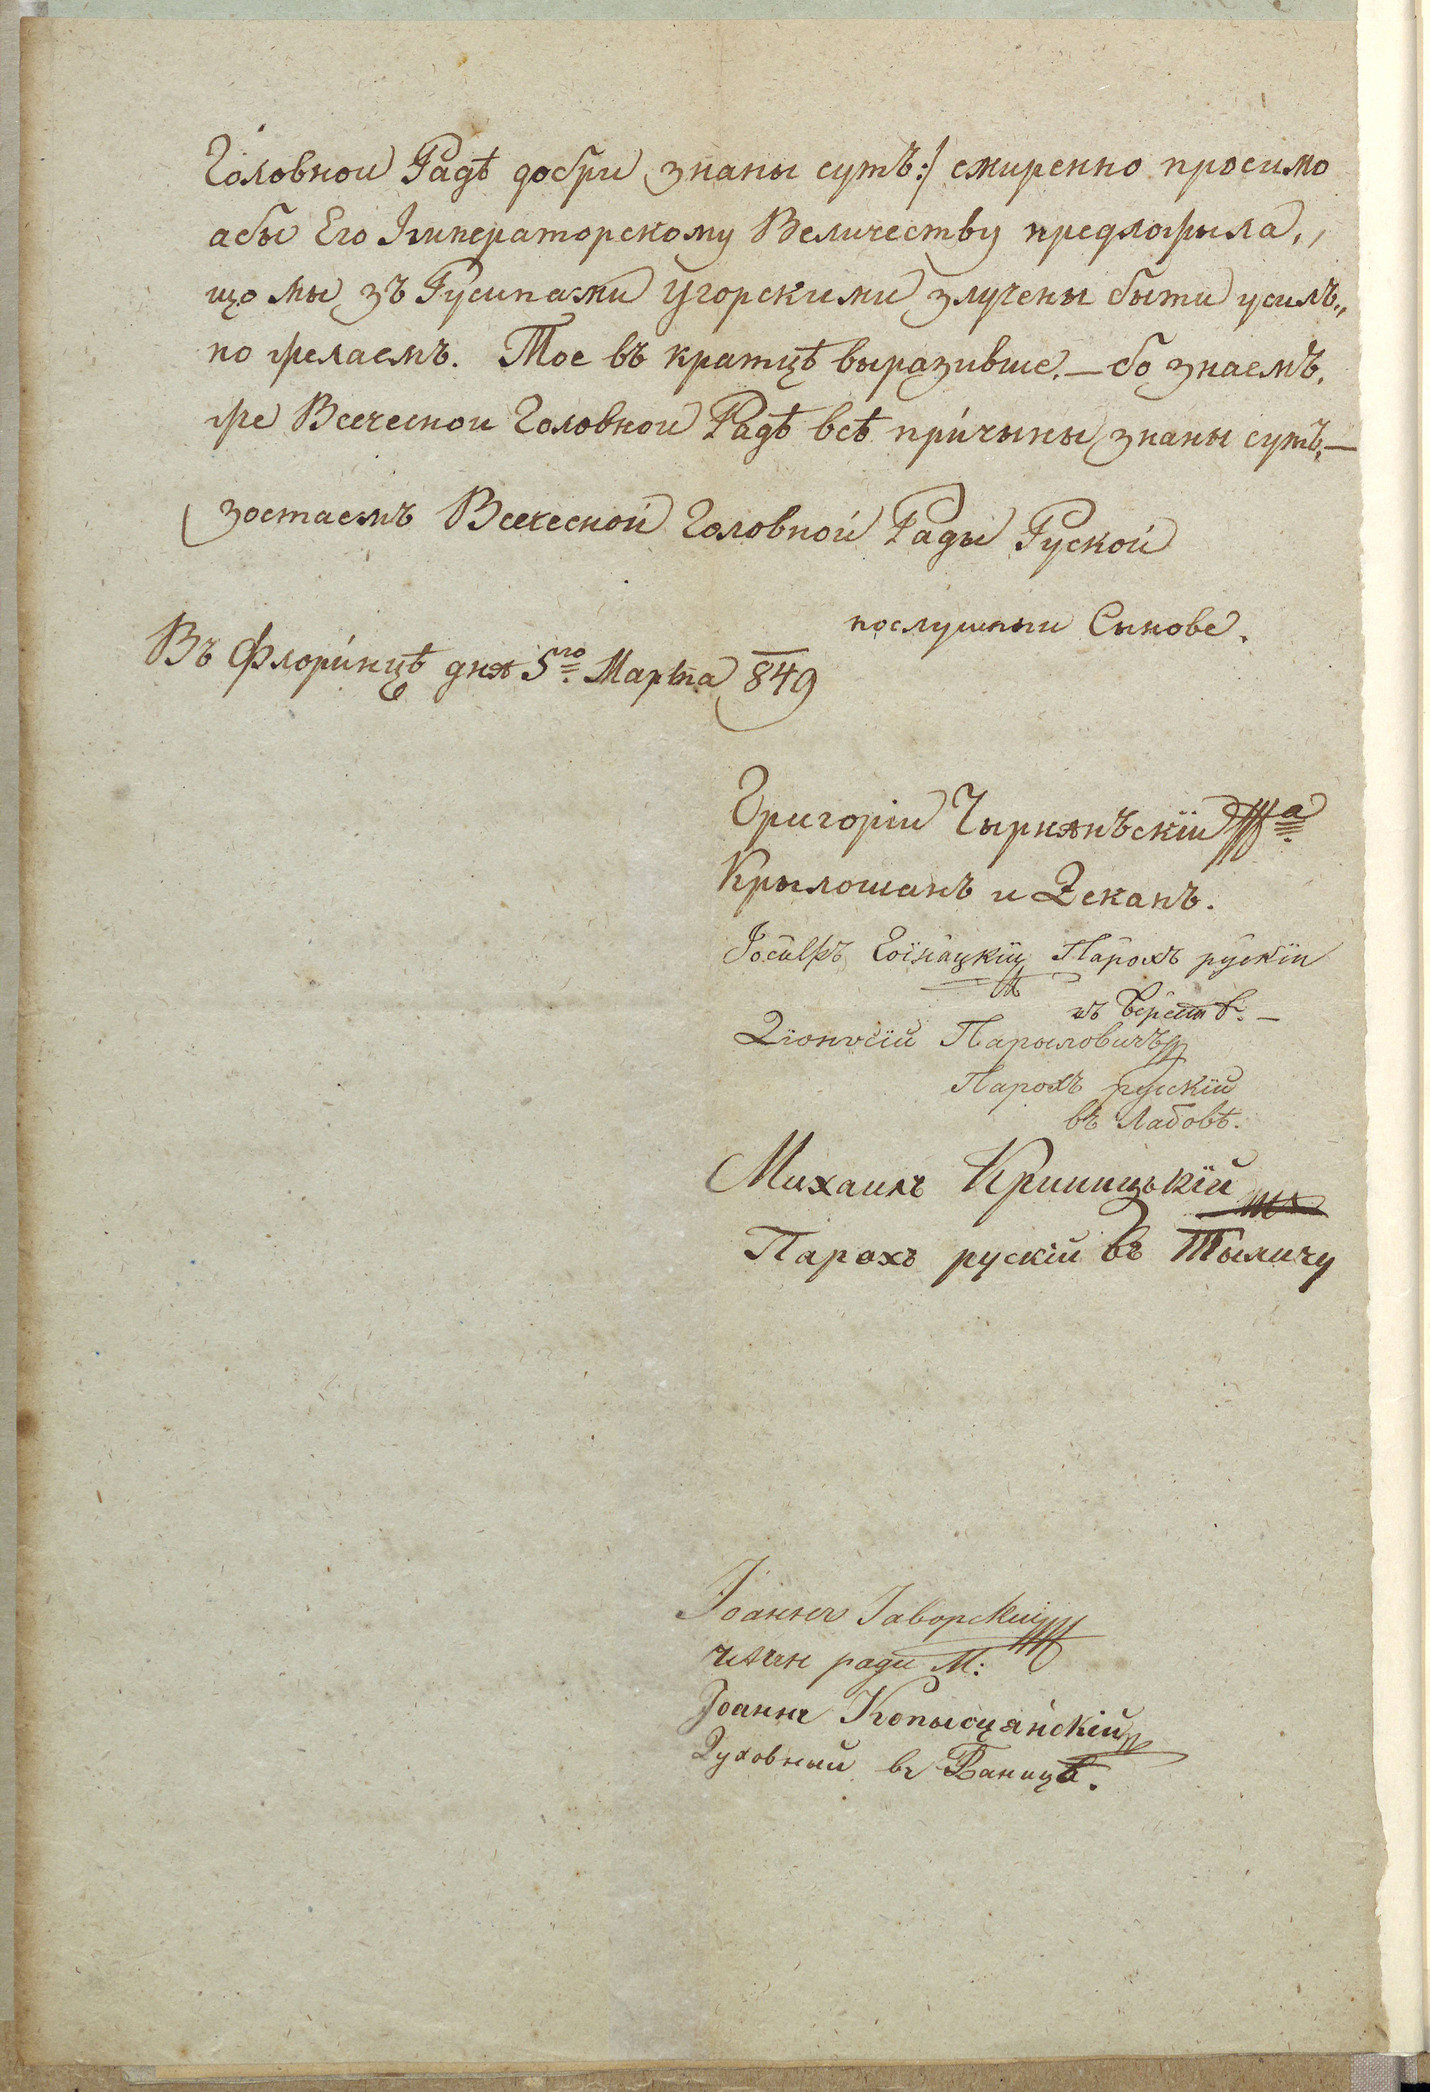 Головнои Радѣ добри знаны суть:/ смиренно просимо
абы Его Імператорскому Величеству предложыла,
що мы зъ Русинами Угорскими злучены быти усиль„
но желаемъ. Тое въ кратцѣ выразивше, — бо знаемъ,
же Всечеснои Головнои Радѣ всѣ причыны знаны суть, —
зостаемъ Всечесной Головной Рады Руской
послушни Сынове.
Въ Флоринцѣ дня 5го Марта 849
Григорій Чырняньскій
Крылошанъ и Деканъ.
Іосифъ Парохъ рускій
въ
Діонѵсій Парыловичъ
Парохъ русскій
въ Лабовѣ.
Михаилъ Криницькій
Парохъ рускій въ Тыличу
Іоаннъ Яворскій
члчн ради М:
Іоаннъ Копысцянскій
Духовный въ Баницѣ.